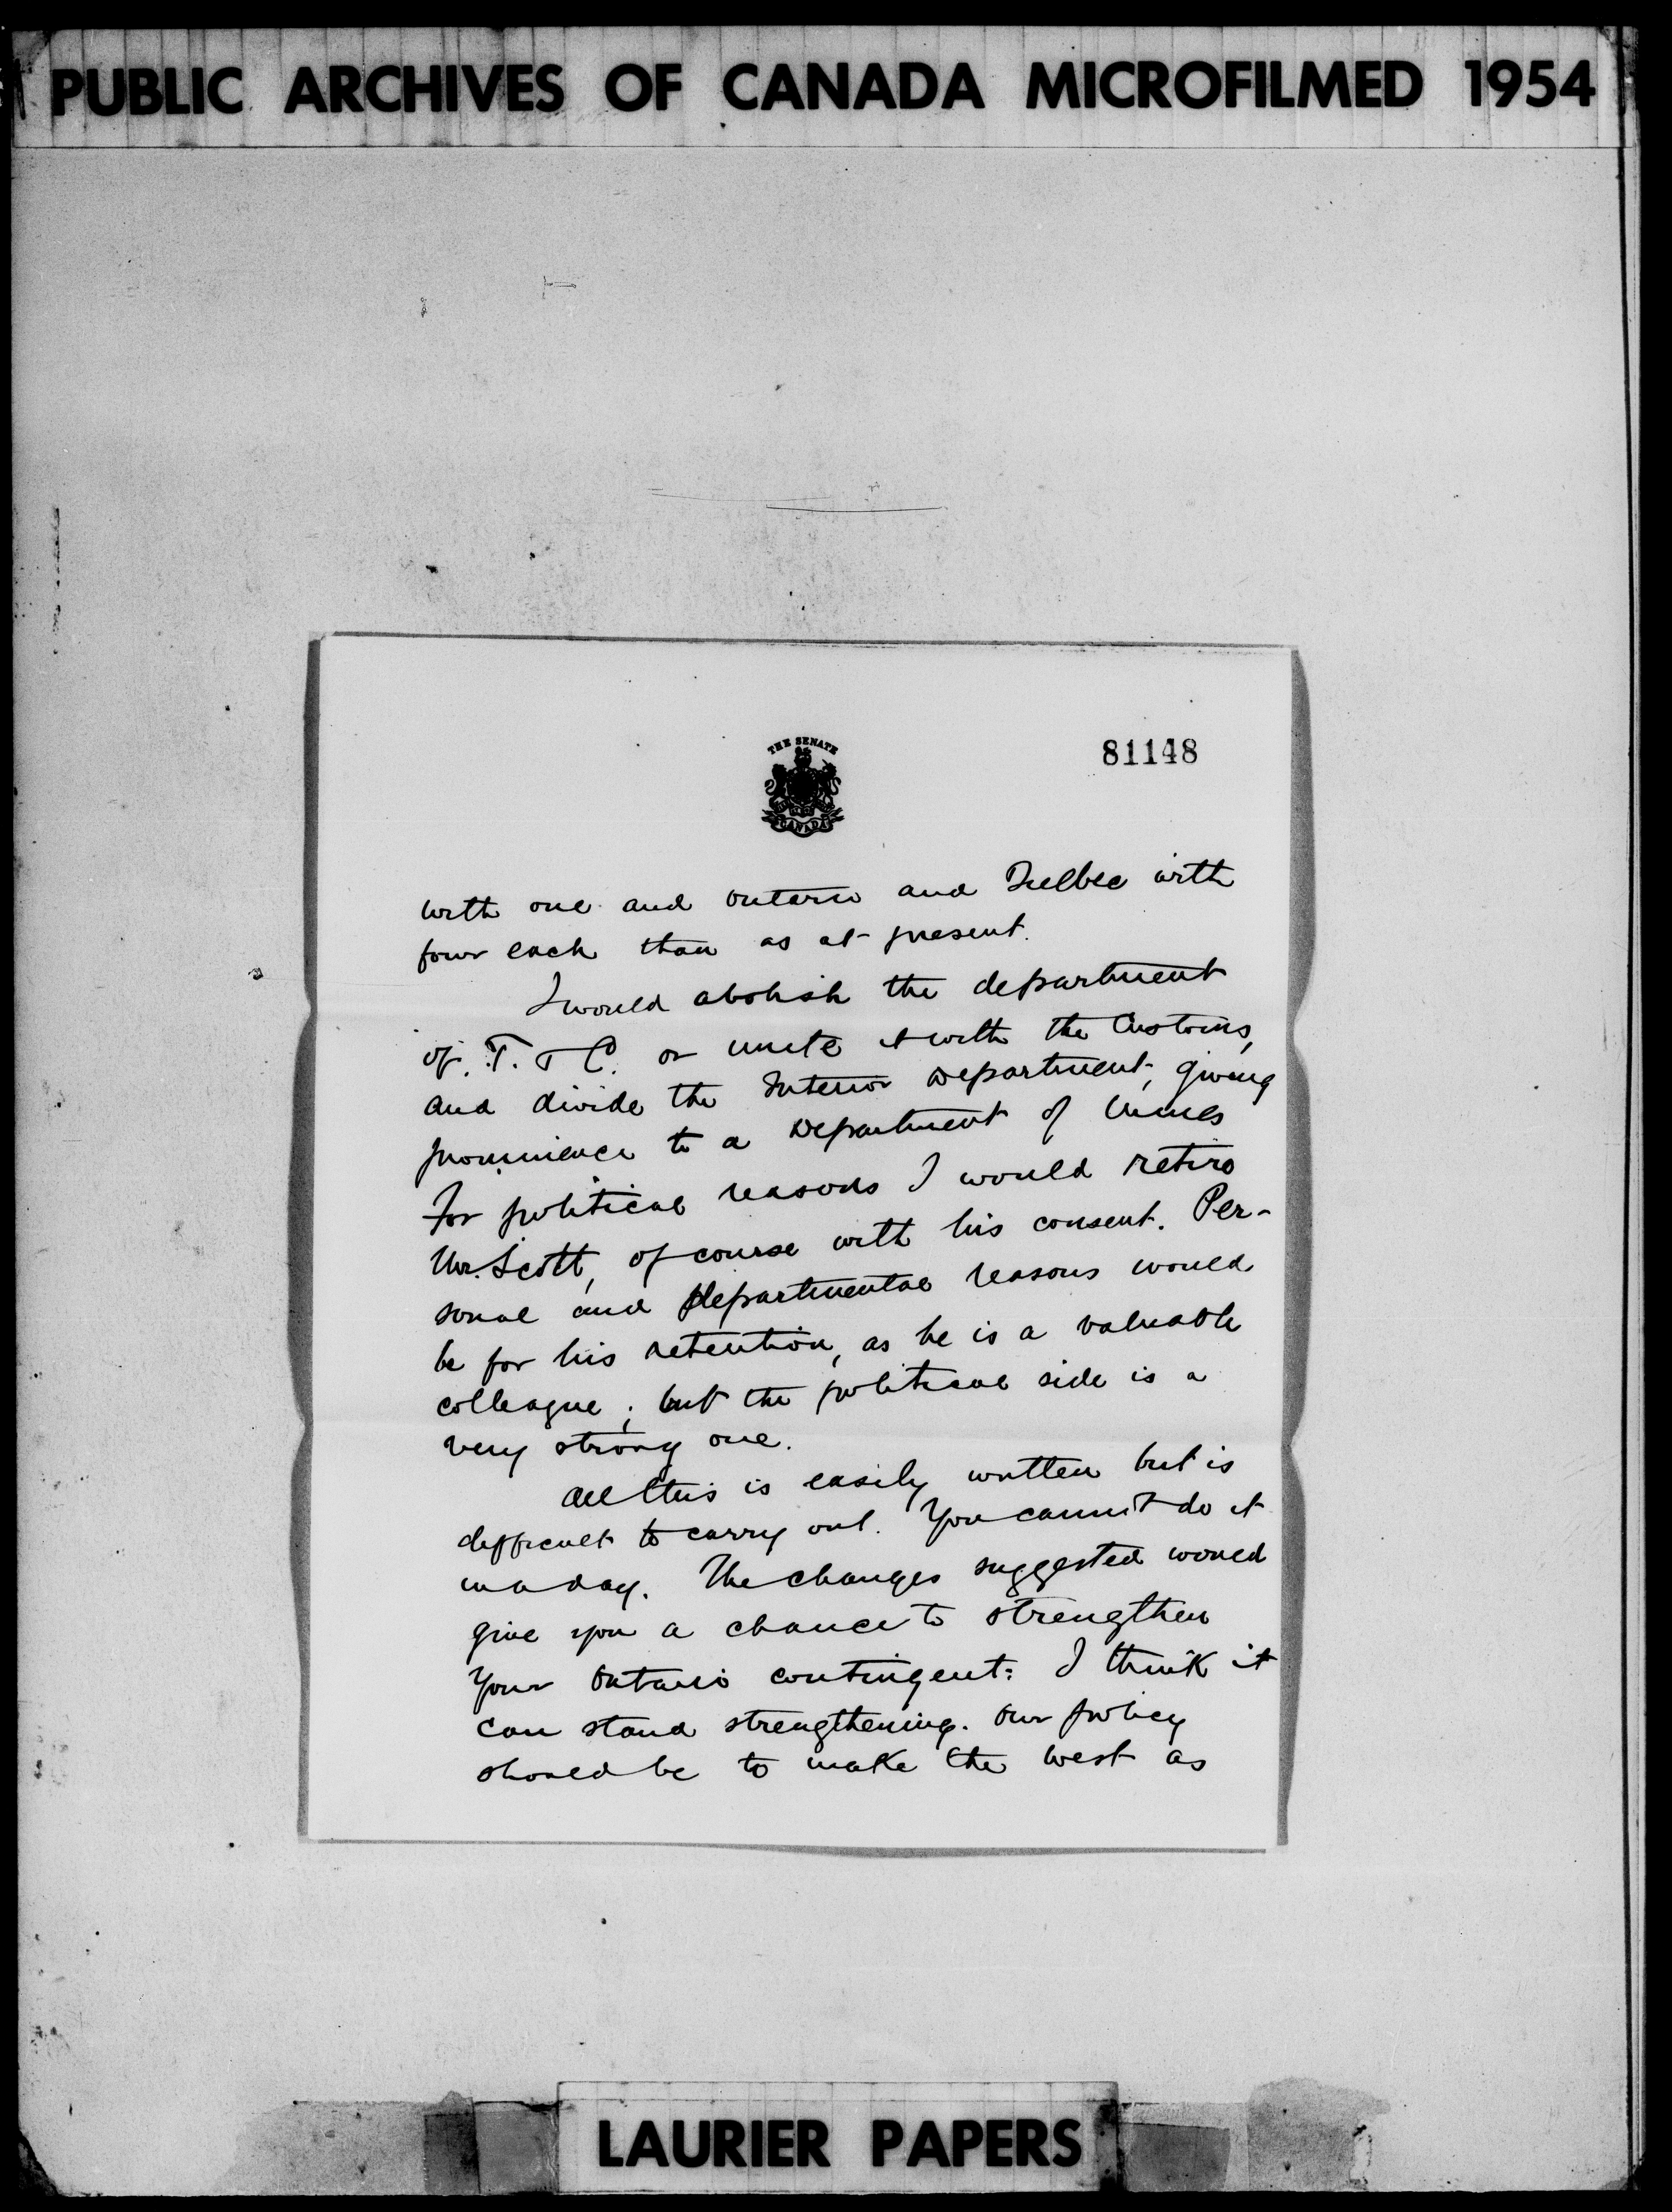 PUBLIC ARCHIVES OF CANADA MICROFILMED 1954
THE SENATE
CANADA
81148
with one and Ontario and Quebec with
four each than as at present.
I would abolish the department
of T. & C. or unite it with the Customs,
and divide the Interior Department, giving
prominence to a Department of Mines
For political reasons I would retire
Mr. Scott, of course with his consent. Per-
sonal and Departmental reasons would
be for his retention, as he is a valuable
colleague; but the political side is a
very strong one.
All this is easily written but is
difficult to carry out. You cannot do it
in a day. The changes suggested would
give you a chance to strengthen
your Ontario contingent: I think it
can stand strengthening. Our policy
should be to make the West as
LAURIER PAPERS